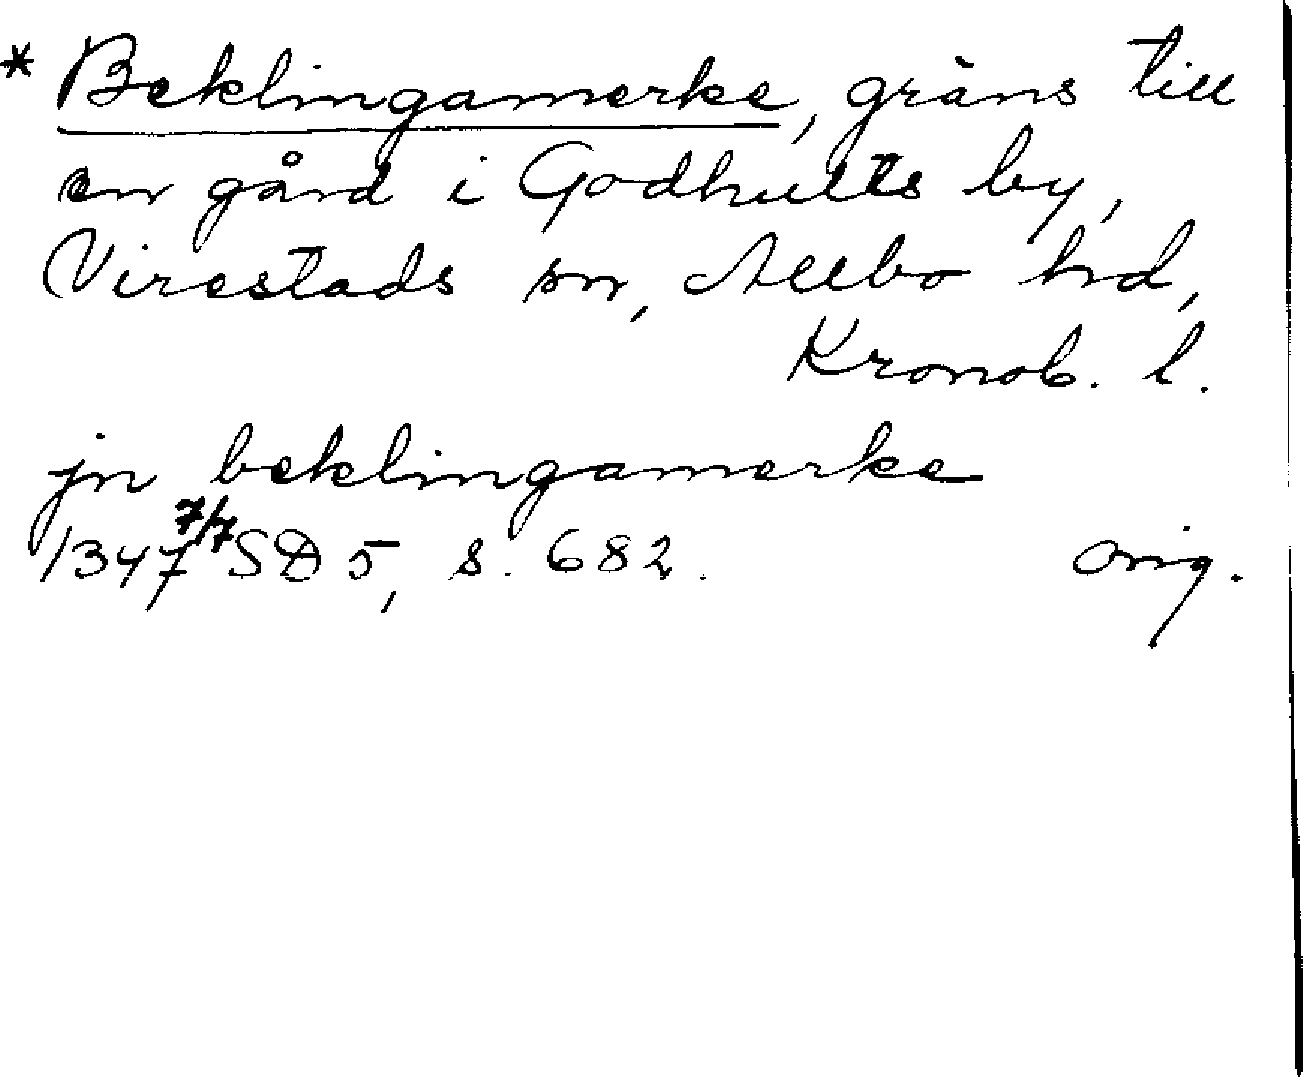 * Beklingamerke, gräns till
en gård i Godhults by,
Virestads sn, Allbo hd,
Kronob. l.
jn beklingamerke
1347 7/7 SD 5, s. 682. orig.